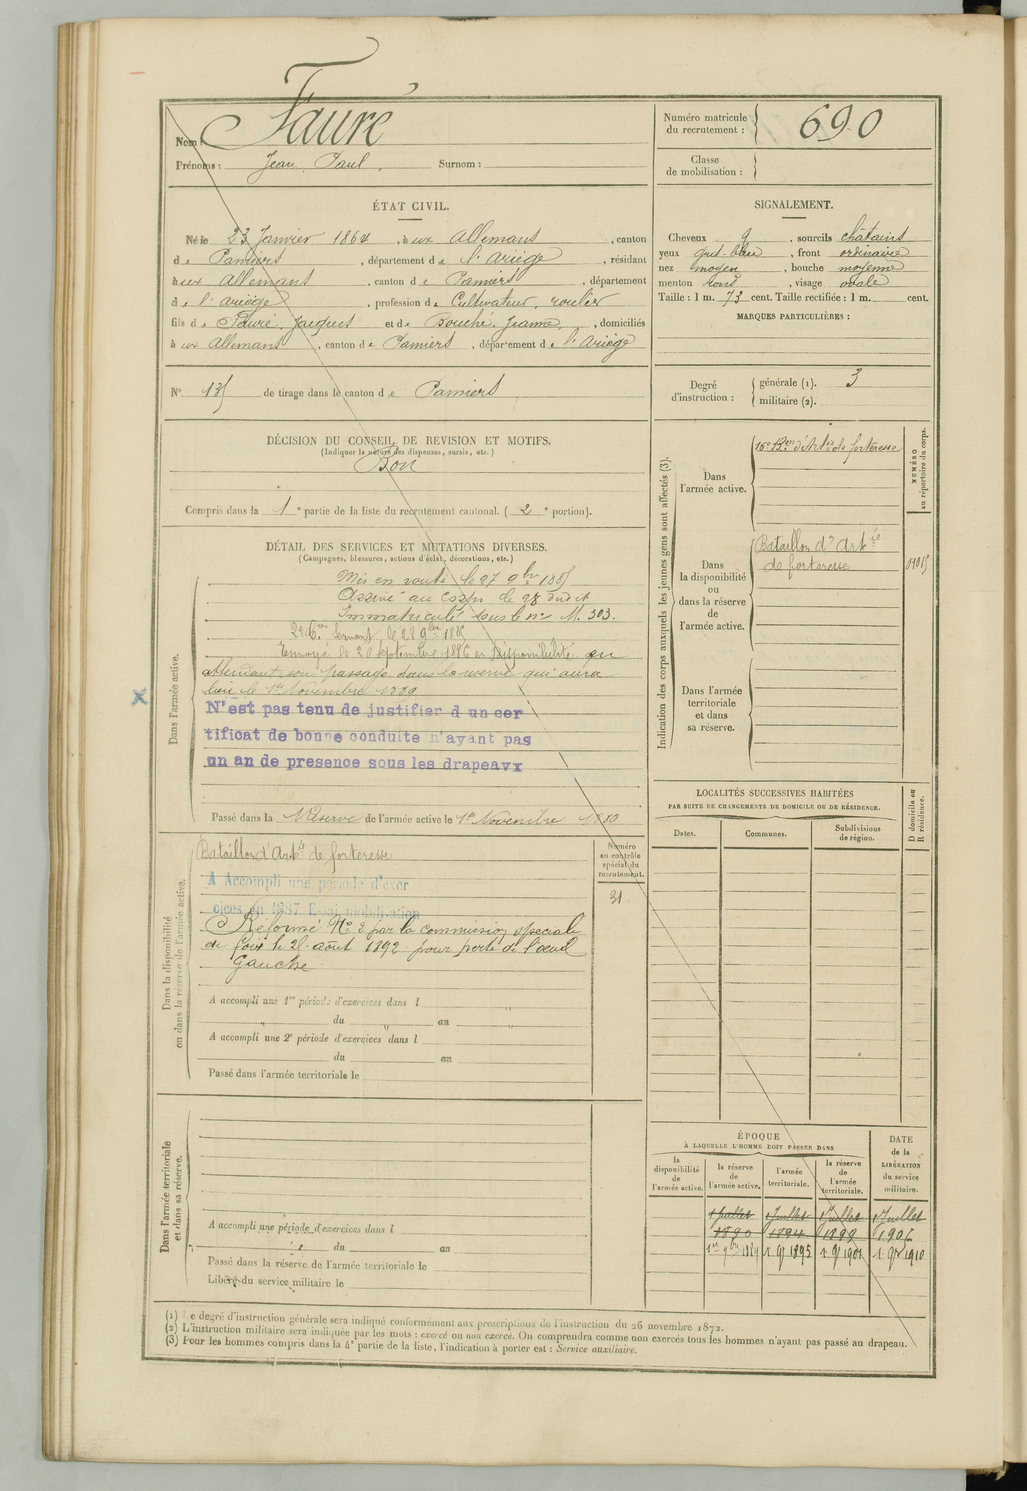 Nom : Fauré
Prénoms : Jean Paul. Surnom :
Numéro matricule du recrutement : 690
Classe de mobilisation :
ÉTAT CIVIL.
Né le 23 Janvier 1864, à aux Allemans, canton
de Pamiers, département de l'Ariège, résidant
à aux Allemans, canton de Pamiers, département
de l'Ariège, profession de Cultivateur, roulier
fils de Fauré, Jacques et de Bouché, Jeanne, domiciliés
à aux Allemans, canton de Pamiers, département de l'Ariège
SIGNALEMENT.
Cheveux , sourcils châtains
yeux gris-bleu, front ordinaire
nez moyen, bouche moyenne
menton rond, visage ovale
Taille : 1 m. 73 cent. Taille rectifiée : 1 m. cent.
MARQUES PARTICULIÈRES :
N° de tirage dans le canton de Pamiers
Degré d'instruction :
générale (1). 3
militaire (2).
DÉCISION DU CONSEIL DE REVISION ET MOTIFS.
(Indiquer la nature des dispenses, sursis, etc.)
Bon
Compris dans la 1e partie de la liste du recrutement cantonal. (2e portion).
DÉTAIL DES SERVICES ET MUTATIONS DIVERSES.
(Campagnes, blessures, actions d'éclat, décorations, etc.)
Dans l'armée active.
Mis en route le 27 9bre 1885
Arrivé au corps le 28 dudit
Immatriculé sous le n° M. 303.
2d Cer Servant le 28 9bre 1885
Envoyé le 20 Septembre 1886 en disponibilité en
attendant son passage dans la réserve qui aura
lieu le 1er Novembre 1889
N'est pas tenu de justifier d un cer
tificat de bonne conduite n'ayant pas
un an de presence sous les drapeavx
Passé dans la Réserve de l'armée active le 1er Novembre 1889
Dans la disponibilité ou dans la réserve de l'armée active.
Bataillon d'Artie de forteresse
A Accompli une période d'exer
cices en 1887 Essai mobilisation
Réformé N° 2 par la commission spéciale
de Foix le août 1892 pour perte de l'oeuil
Gauche
Numéro au contrôle spécial du recrutement.
31
A accompli une 1re période d'exercices dans l
du au
A accompli une 2e période d'exercices dans l
du au
Passé dans l'armée territoriale le
Dans l'armée territoriale et dans sa réserve.
A accompli une période d'exercices dans l
du au
Passé dans la réserve de l'armée territoriale le
Libéré du service militaire le
Indication des corps auxquels les jeunes gens sont affectés (3).
NUMÉRO au répertoire du corps.
Dans l'armée active.
16e Bon d'Artie de forteresse
Dans la disponibilité ou dans la réserve de l'armée active.
Bataillon d'Artie
de forteresse
Dans l'armée territoriale et dans sa réserve.
LOCALITÉS SUCCESSIVES HABITÉES
PAR SUITE DE CHANGEMENTS DE DOMICILE OU DE RÉSIDENCE.
D domicile ou R résidence.
Dates. Communes. Subdivisions de région.
ÉPOQUE
À LAQUELLE L'HOMME DOIT PASSER DANS
DATE de la LIBÉRATION du service militaire.
la disponibilité de l'armée active.
la réserve de l'armée active.
l'armée territoriale.
la réserve de l'armée territoriale.
1 Juillet 1 Juillet 1 Juillet 1 Juillet
1890 1894 1899 1905
1er 9bre 1889 1 9 1895 1 9 1901 1 9r 1910
(1) Le degré d'instruction générale sera indiqué conformément aux prescriptions de l'instruction du 26 novembre 1872.
(2) L'instruction militaire sera indiquée par les mots : exercé ou non exercé. On comprendra comme non exercés tous les hommes n'ayant pas passé au drapeau.
(3) Pour les hommes compris dans la 4e partie de la liste, l'indication à porter est : Service auxiliaire.